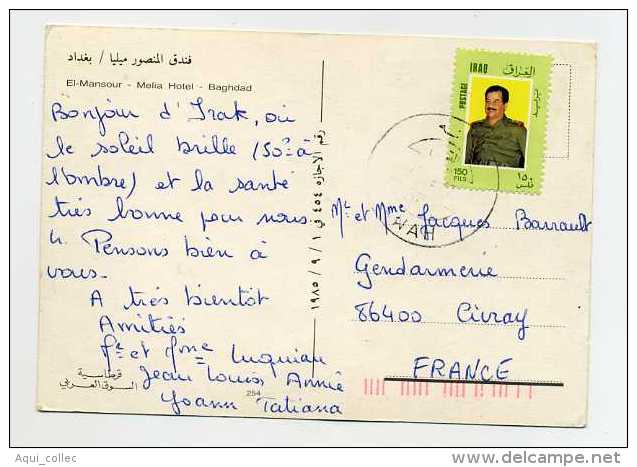 فندق المنصور ميليا / بغداد
El-Mansour - Melia Hotel - Baghdad
Bonjour d'Irak, où
le soleil brille (50° à
l'ombre) et la santé
très bonne pour nous
4. Pensons bien à
vous.
A très bientôt
Amitiés
et Mme Luquiau
Jean Louis Annie
Yoann Tatiana
قرطاسية
السوق العربي
254
رقم الاجازه ٤٥٤ في ١ / ٩ / ١٩٨٥
IRAQ العراق
POSTAGE
بريد
150
FILS
١٥٠
فلس
Mr et Mme Jacques Barrault
Gendarmerie
86400 Civray
FRANCE
Aqui_collec
delcampe.net